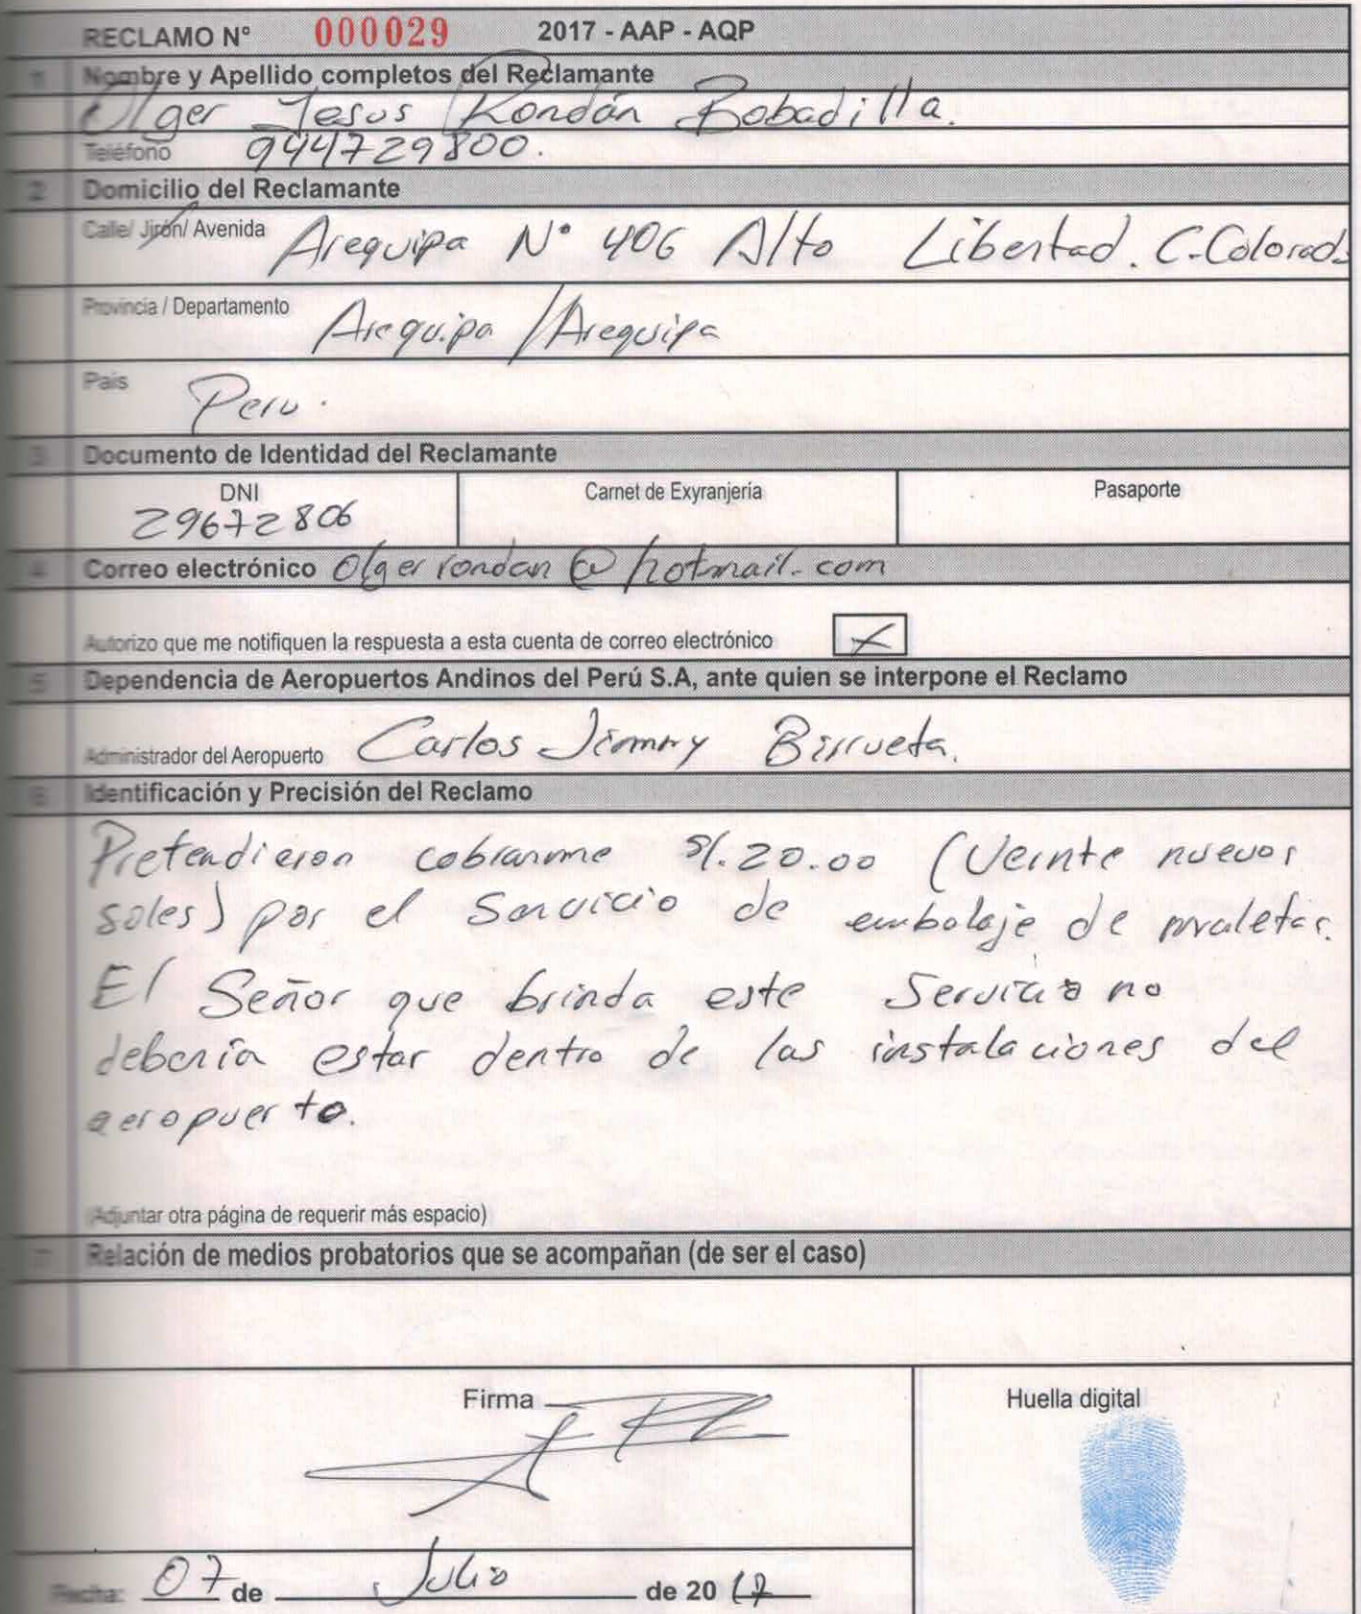 RECLAMO N° 000029 2017 - AAP - AQP
1 Nombre y Apellido completos del Reclamante
Olger Jesus Rondán Bobadilla.
Teléfono 944729800.
2 Domicilio del Reclamante
Calle/ Jirón/ Avenida Arequipa N° 406 Alto Libertad. C.Colorado
Provincia / Departamento Arequipa / Arequipa
País Peru.
3 Documento de Identidad del Reclamante
DNI Carnet de Exyranjería Pasaporte
29672806
4 Correo electrónico Olgerrondan@hotmail.com
Autorizo que me notifiquen la respuesta a esta cuenta de correo electrónico X
5 Dependencia de Aeropuertos Andinos del Perú S.A, ante quien se interpone el Reclamo
Administrador del Aeropuerto Carlos Jimmy Birrueta.
6 Identificación y Precisión del Reclamo
Pretendieron cobrarme S/.20.00 (Veinte nuevos
soles) por el Servicio de embolaje de maletas.
El Señor que brinda este Servicio no
debería estar dentro de las instalaciones del
aeropuerto.
(Adjuntar otra página de requerir más espacio)
7 Relación de medios probatorios que se acompañan (de ser el caso)
Firma Huella digital
Fecha: 07 de Julio de 2017